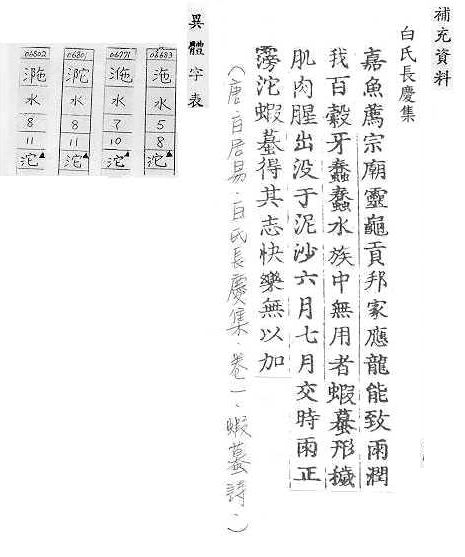 補充資料
白氏長慶集
嘉魚薦宗廟靈龜貢邦家應龍能致雨潤
我百穀牙蠢蠢水族中無用者蝦蟇形穢
肌肉腥出没于泥沙六月七月交時雨正
霶沱蝦蟇得其志快樂無以加
(唐.白居易.白氏長慶集.卷一.蝦蟇詩.)
異體字表
06683
沲
水
5
8
沱▲
06771
水
7
10
沱▲
06801
水
8
11
沱▲
06802
水
8
11
沱▲